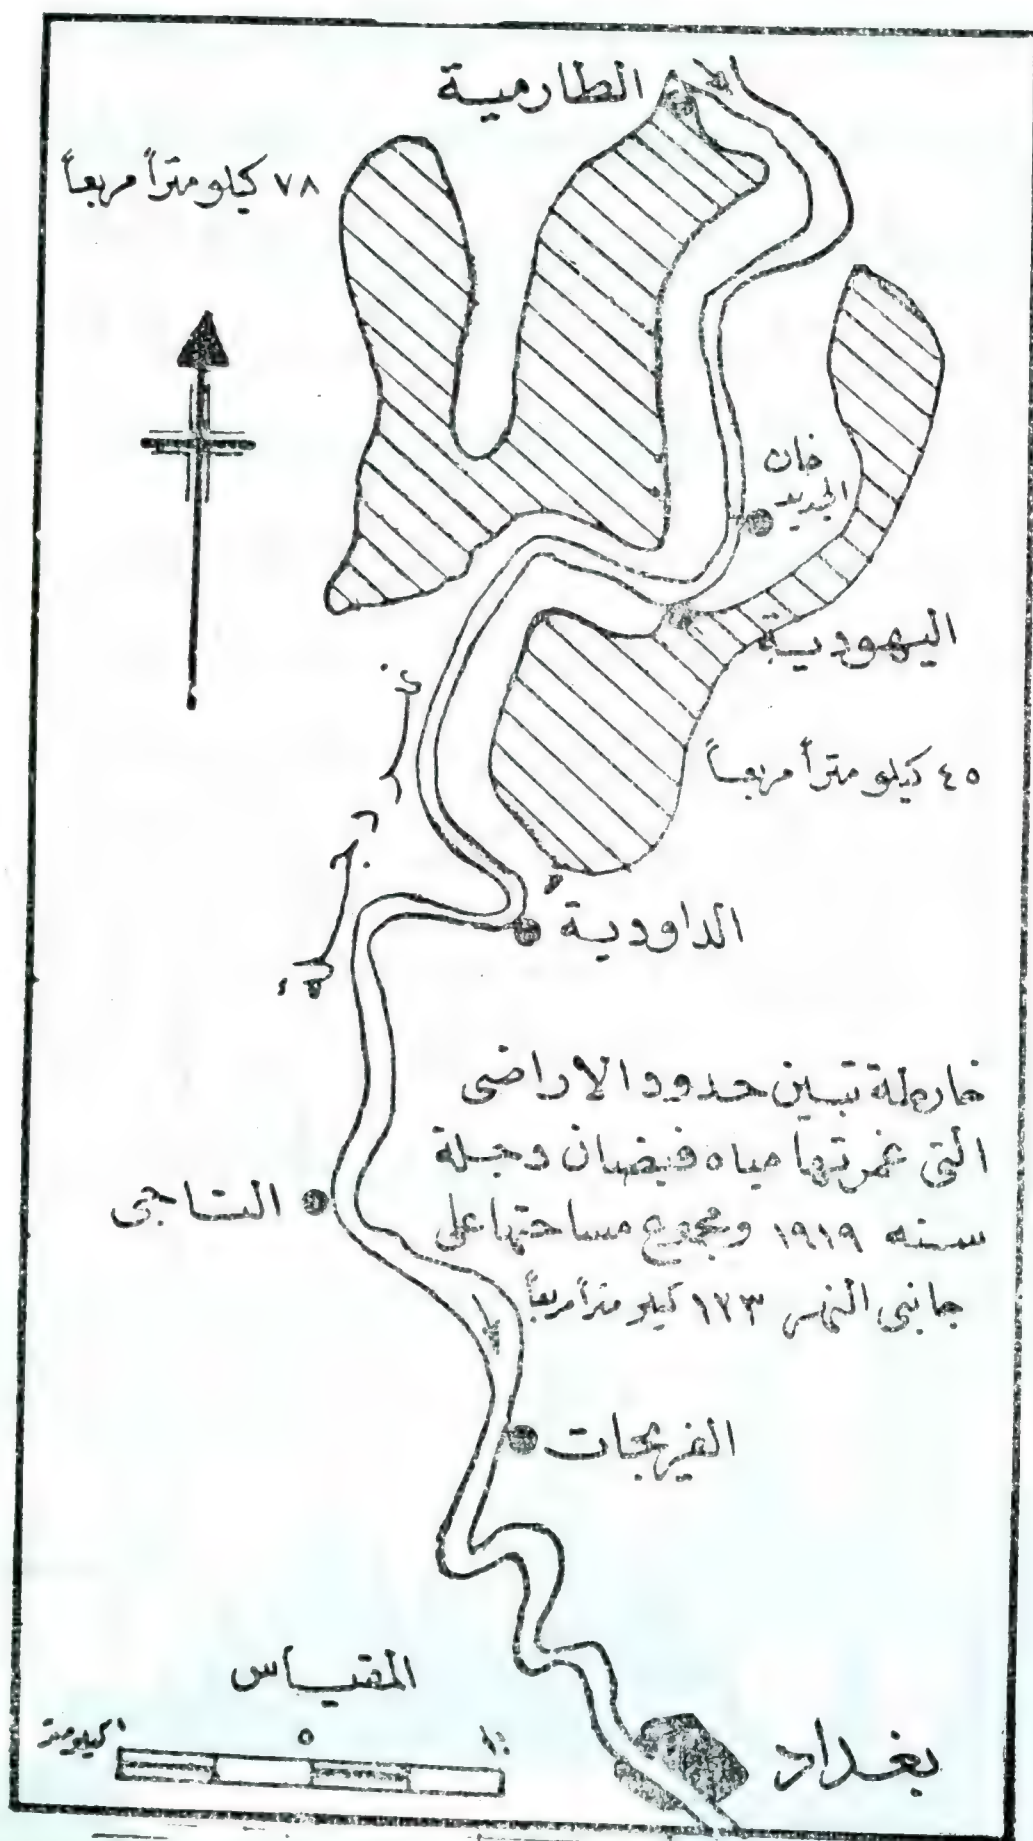 الطارمية
٧٨ كيلومتراً مربعاً
خان
الجديد
اليهودية
٤٥ كيلومتراً مربعاً
نهر دجلة
الداودية
خارطة تبين حدود الاراضى
التى غمرتها مياه فيضان دجلة
سنه ١٩١٩ ومجموع مساحتها على
جانبى النهر ١٢٣ كيلومتراً مربعاً
التاجى
الفريجات
المقياس
كيلومتر
٥
١٠
بغداد